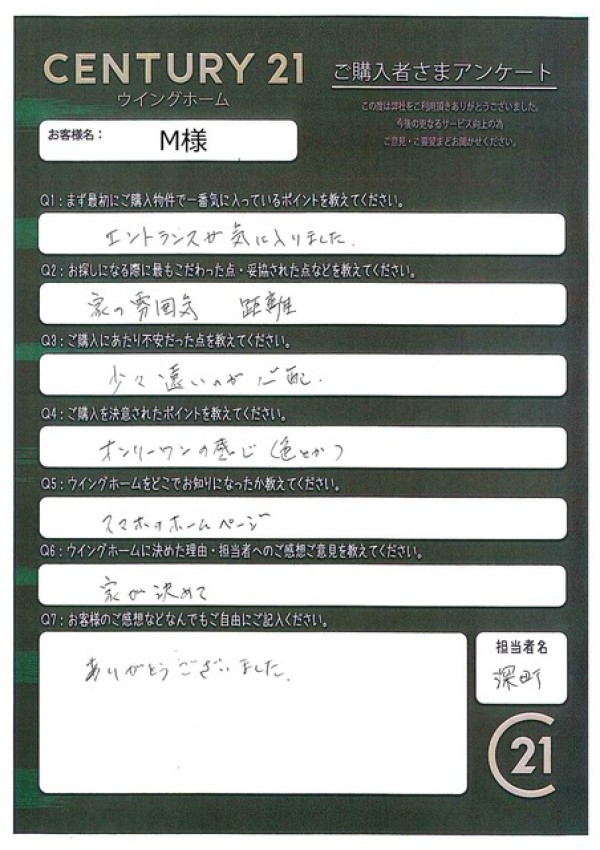 CENTURY 21
ウイングホーム
ご購入者さまアンケート
この度は弊社をご利用頂きありがとうございました。
今後の更なるサービス向上の為
ご意見・ご要望などお聞かせください。
お客様名：
M様
Q1：まず最初にご購入物件で一番気に入っているポイントを教えてください。
エントランスが気に入りました。
Q2：お探しになる際に最もこだわった点・妥協された点などを教えてください。
家の雰囲気 距離
Q3：ご購入にあたり不安だった点を教えてください。
少々遠いのが心配.
Q4：ご購入を決意されたポイントを教えてください。
オンリーワンの感じ（色とか）
Q5：ウイングホームをどこでお知りになったか教えてください。
スマホのホームページ
Q6：ウイングホームに決めた理由・担当者へのご感想ご意見を教えてください。
家が決めて
Q7：お客様のご感想などなんでもご自由にご記入ください。
ありがとうございました。
担当者名
深町
C21